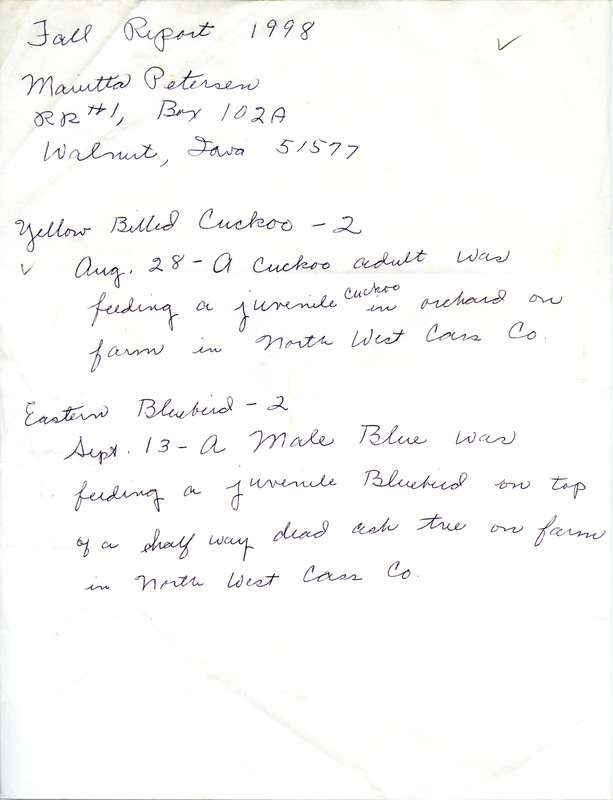 Fall Report 1998
Marietta Petersen
RR #1, Box 102A
Walnut, Iowa 51577
Yellow Billed Cuckoo - 2
Aug. 28 - A cuckoo adult was
feeding a juvenile cuckoo in orchard on
farm in North West Cass Co.
Eastern Bluebird - 2
Sept. 13 - A Male Blue was
feeding a juvenile Bluebird on top
of a half way dead ash tree on farm
in North West Cass Co.